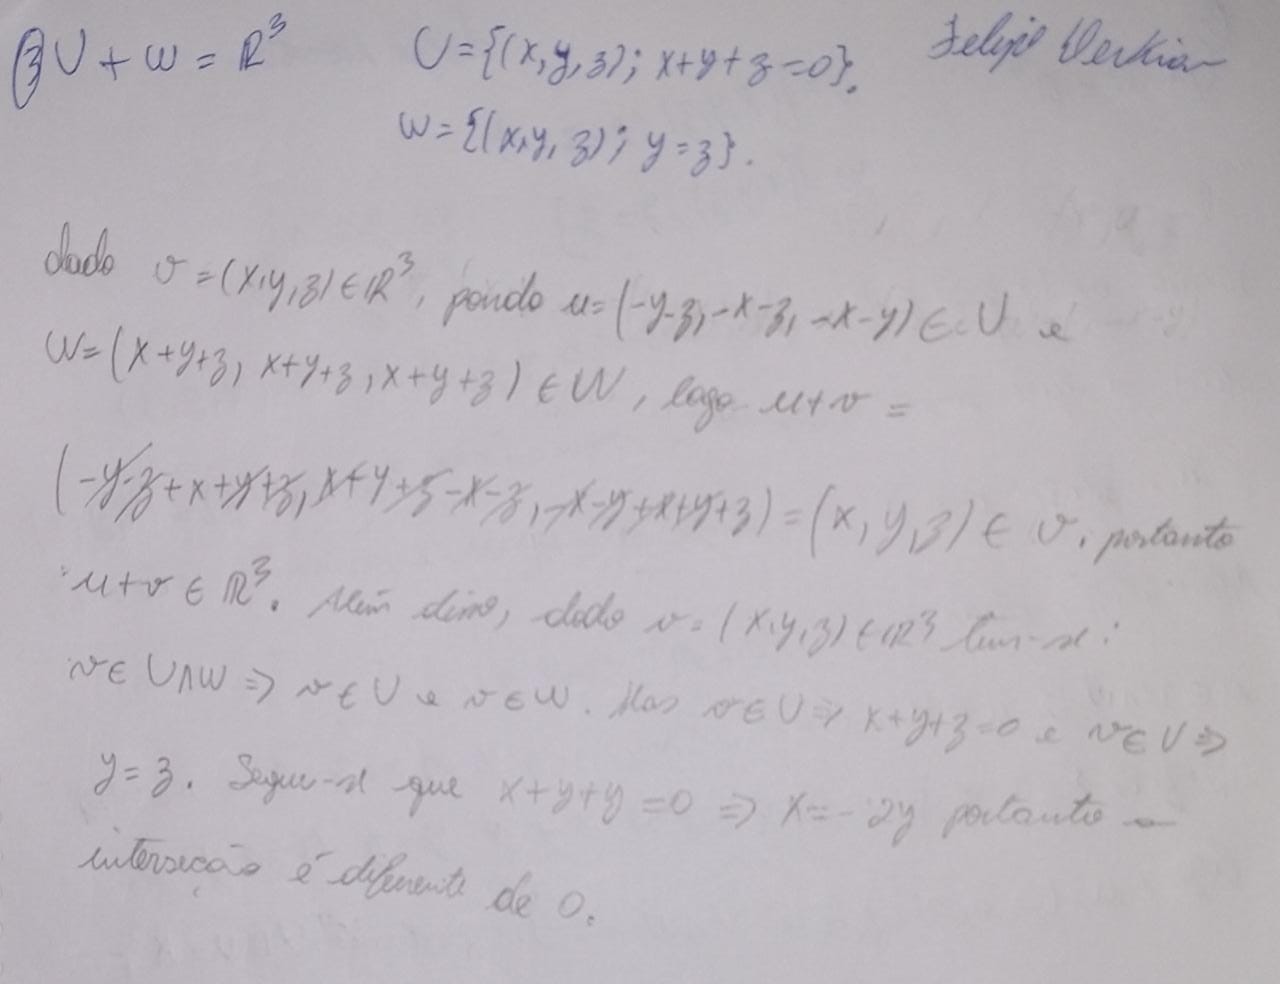 3) U + W = ℝ³ U = {(x, y, z); x+y+z=0}. Felipe
W = {(x, y, z); y = z}.
dado v = (x, y, z) ∈ ℝ³, pondo u = (-y-z, -x-z, -x-y) ∈ U e
W = (x+y+z, x+y+z, x+y+z) ∈ W, logo u+v =
(-y-z+x+y+z, x+y+z-x-z, -x-y+x+y+z) = (x, y, z) ∈ v. portanto
u+v ∈ ℝ³. Além disso, dado v = (x, y, z) ∈ ℝ³ tem-se:
v ∈ U∩W ⇒ v ∈ U e v ∈ W. Mas v ∈ U ⇒ x+y+z=0 e v ∈ U ⇒
y = z. Segue-se que x+y+y = 0 ⇒ x = -2y portanto a
interseção é diferente de 0.